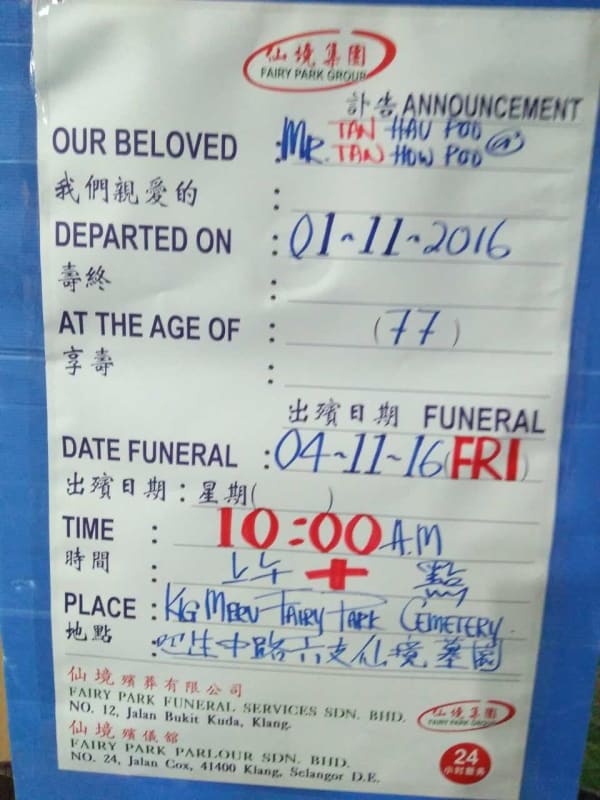 仙境集團
FAIRY PARK GROUP
訃告 ANNOUNCEMENT
OUR BELOVED : MR. TAN HAU POO @
TAN HOW POO
我們親愛的 :
DEPARTED ON : 01-11-2016
壽終 :
AT THE AGE OF : (77)
享壽 :
出殯日期 FUNERAL
DATE FUNERAL : 04-11-16 (FRI)
出殯日期 : 星期( )
TIME : 10:00 A.M
時間 : 上午 十 點
PLACE : KG MERU FAIRY PARK CEMETERY
地點 : 巴生中路六支仙境墓園
仙境殯葬有限公司
FAIRY PARK FUNERAL SERVICES SDN. BHD.
NO. 12, Jalan Bukit Kuda, Klang.
仙境集團
FAIRY PARK GROUP
仙境殯儀館
FAIRY PARK PARLOUR SDN. BHD.
NO. 24, Jalan Cox, 41400 Klang, Selangor D.E.
24
小时服务